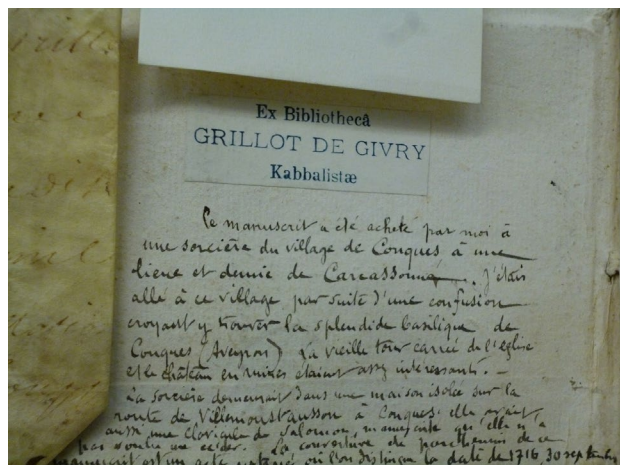 Ex Bibliothecâ
GRILLOT DE GIVRY
Kabbalistæ
Ce manuscrit a été acheté par moi à
une sorcière du village de Conques à une
lieue et demie de Carcassonne. J'étais
allé à ce village par suite d'une confusion
croyant y trouver la splendide basilique de
Conques (Aveyron) La vieille tour carrée de l'église
et le château en ruines étaient assez intéressants. —
La sorcière demeurait dans une maison isolée sur la
route de Villemoustausson à Conques. elle avait,
aussi une clavicule de Salomon, manuscrite qu'elle n'a
pas voulu me céder. La couverture de parchemin de ce
manuscrit est un acte notarié où l'on distingue la date de 1716 30 septembre